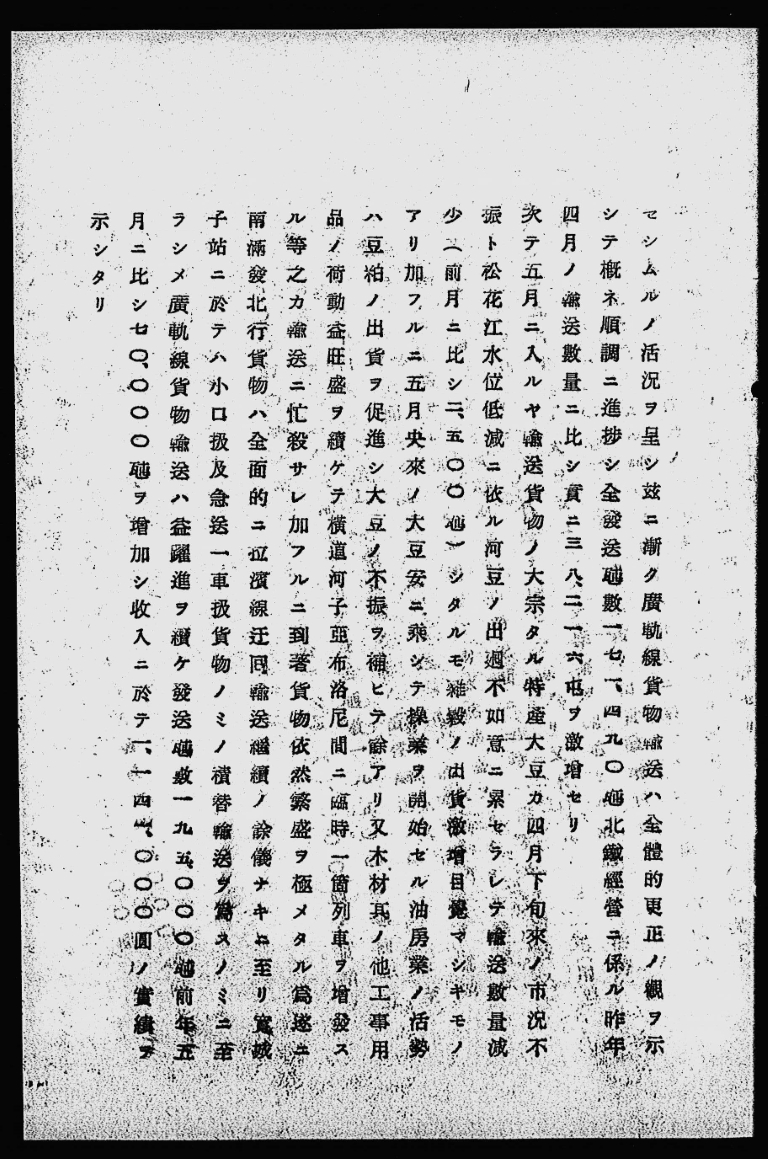 セシムルノ活況ヲ呈シ玆ニ漸ク廣軌線貨物輸送ハ全體的更正ノ觀ヲ示
シテ槪ネ順調ニ進捗シ全發送瓲數一七一、四九〇瓲北鐵經營ニ係ル昨年
四月ノ輸送數量ニ比シ實ニ三八、二一六屯ヲ激增セリ
次テ五月ニ入ルヤ輸送貨物ノ大宗タル特產大豆カ四月下旬來ノ市況不
振ト松花江水位低減ニ依ル河豆ノ出廻不如意ニ累セラレテ輸送數量減
少（前月ニ比シ二、五〇〇瓲）シタルモ雜穀ノ出貨激增目覺マシキモノ
アリ加フルニ五月央來ノ大豆安ニ乘シテ操業ヲ開始セル油房業ノ活勢
ハ豆粕ノ出貨ヲ促進シ大豆ノ不振ヲ補ヒテ餘アリ又木材其ノ他工事用
品ノ荷動益旺盛ヲ續ケテ橫道河子亞布洛尼間ニ臨時一箇列車ヲ增發ス
ル等之カ輸送ニ忙殺サレ加フルニ到著貨物依然繁盛ヲ極メタル爲遂ニ
南滿發北行貨物ハ全面的ニ拉濱線迂囘輸送繼續ノ餘儀ナキニ至リ寬城
子站ニ於テハ小口扱及急送一車扱貨物ノミノ積替輸送ヲ爲スノミニ至
ラシメ廣軌線貨物輸送ハ益躍進ヲ續ケ發送瓲數一九五、〇〇〇瓲前年五
月ニ比シ七〇、〇〇〇瓲ヲ增加シ收入ニ於テ一、一四 、〇〇〇圓ノ實績ヲ
示シタリ